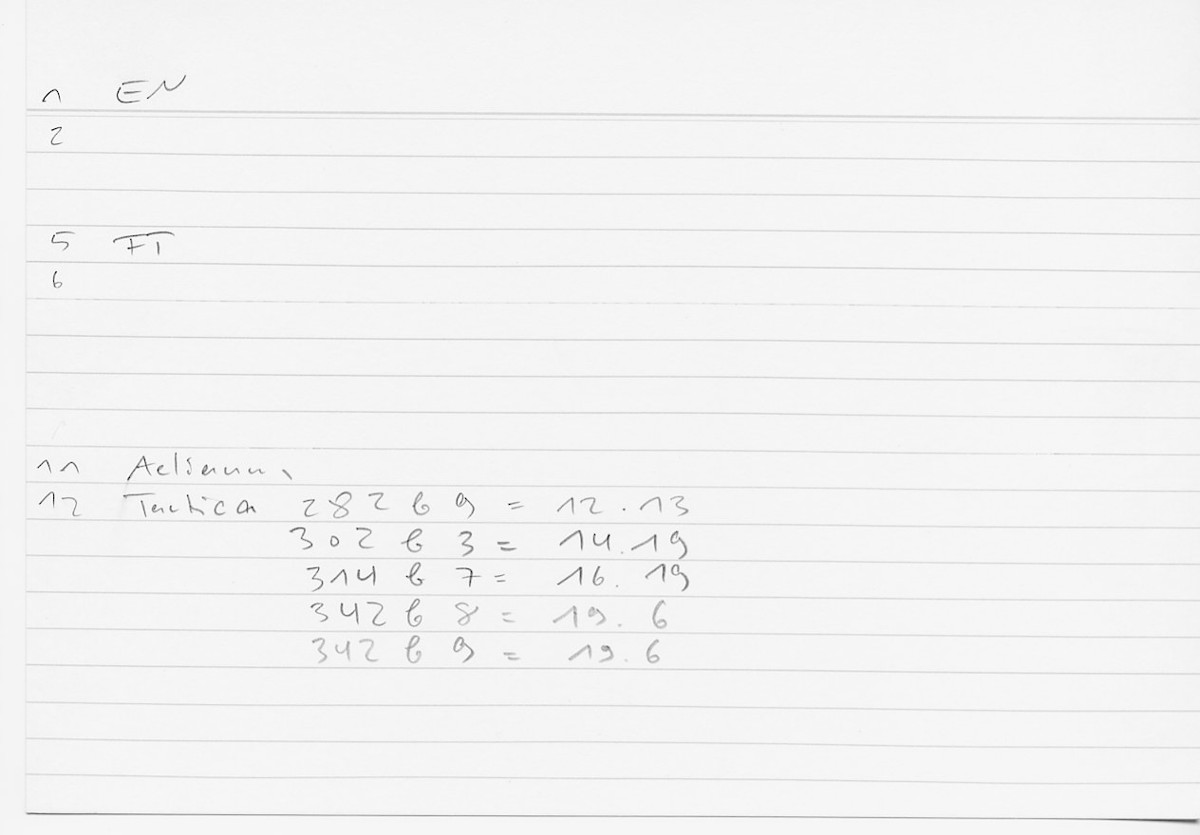 1 EN
2
5 FT
6
11 Aelianus,
12 Tactica 282 b 9 = 12.13
302 b 3 = 14.19
314 b 7 = 16.19
342 b 8 = 19.6
342 b 9 = 19.6